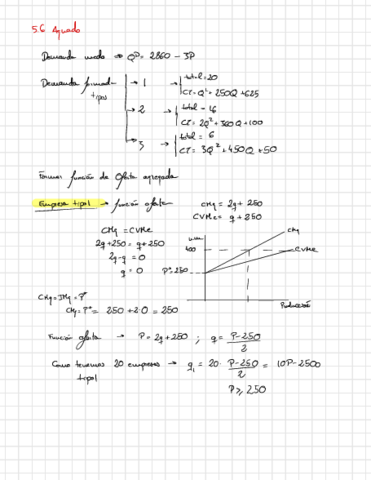 5.6 Aguado
Demanda mcdo → Qᴰ = 2860 - 3P
Demanda firmas
tipos
1
total = 20
CT = Q² + 250Q + 625
2
total = 16
CT = 2Q² + 360Q + 100
3
total = 6
CT = 3Q² + 450Q + 50
función de oferta agregada
Empresa tipo 1 → función oferta
CMg = 2q + 250
CVMe = q + 250
CMg = CVMe
2q + 250 = q + 250
2q - q = 0
q = 0
P* = 250
CMg
CVMe
Producción
CMg = IMg = P*
CMg = P* = 250 + 2·0 = 250
Función oferta → P = 2q + 250 ; q = P - 250 / 2
Como tenemos 20 empresas → q₁ = 20 · P - 250 / 2 = 10P - 2500
tipo 1
P ≥ 250